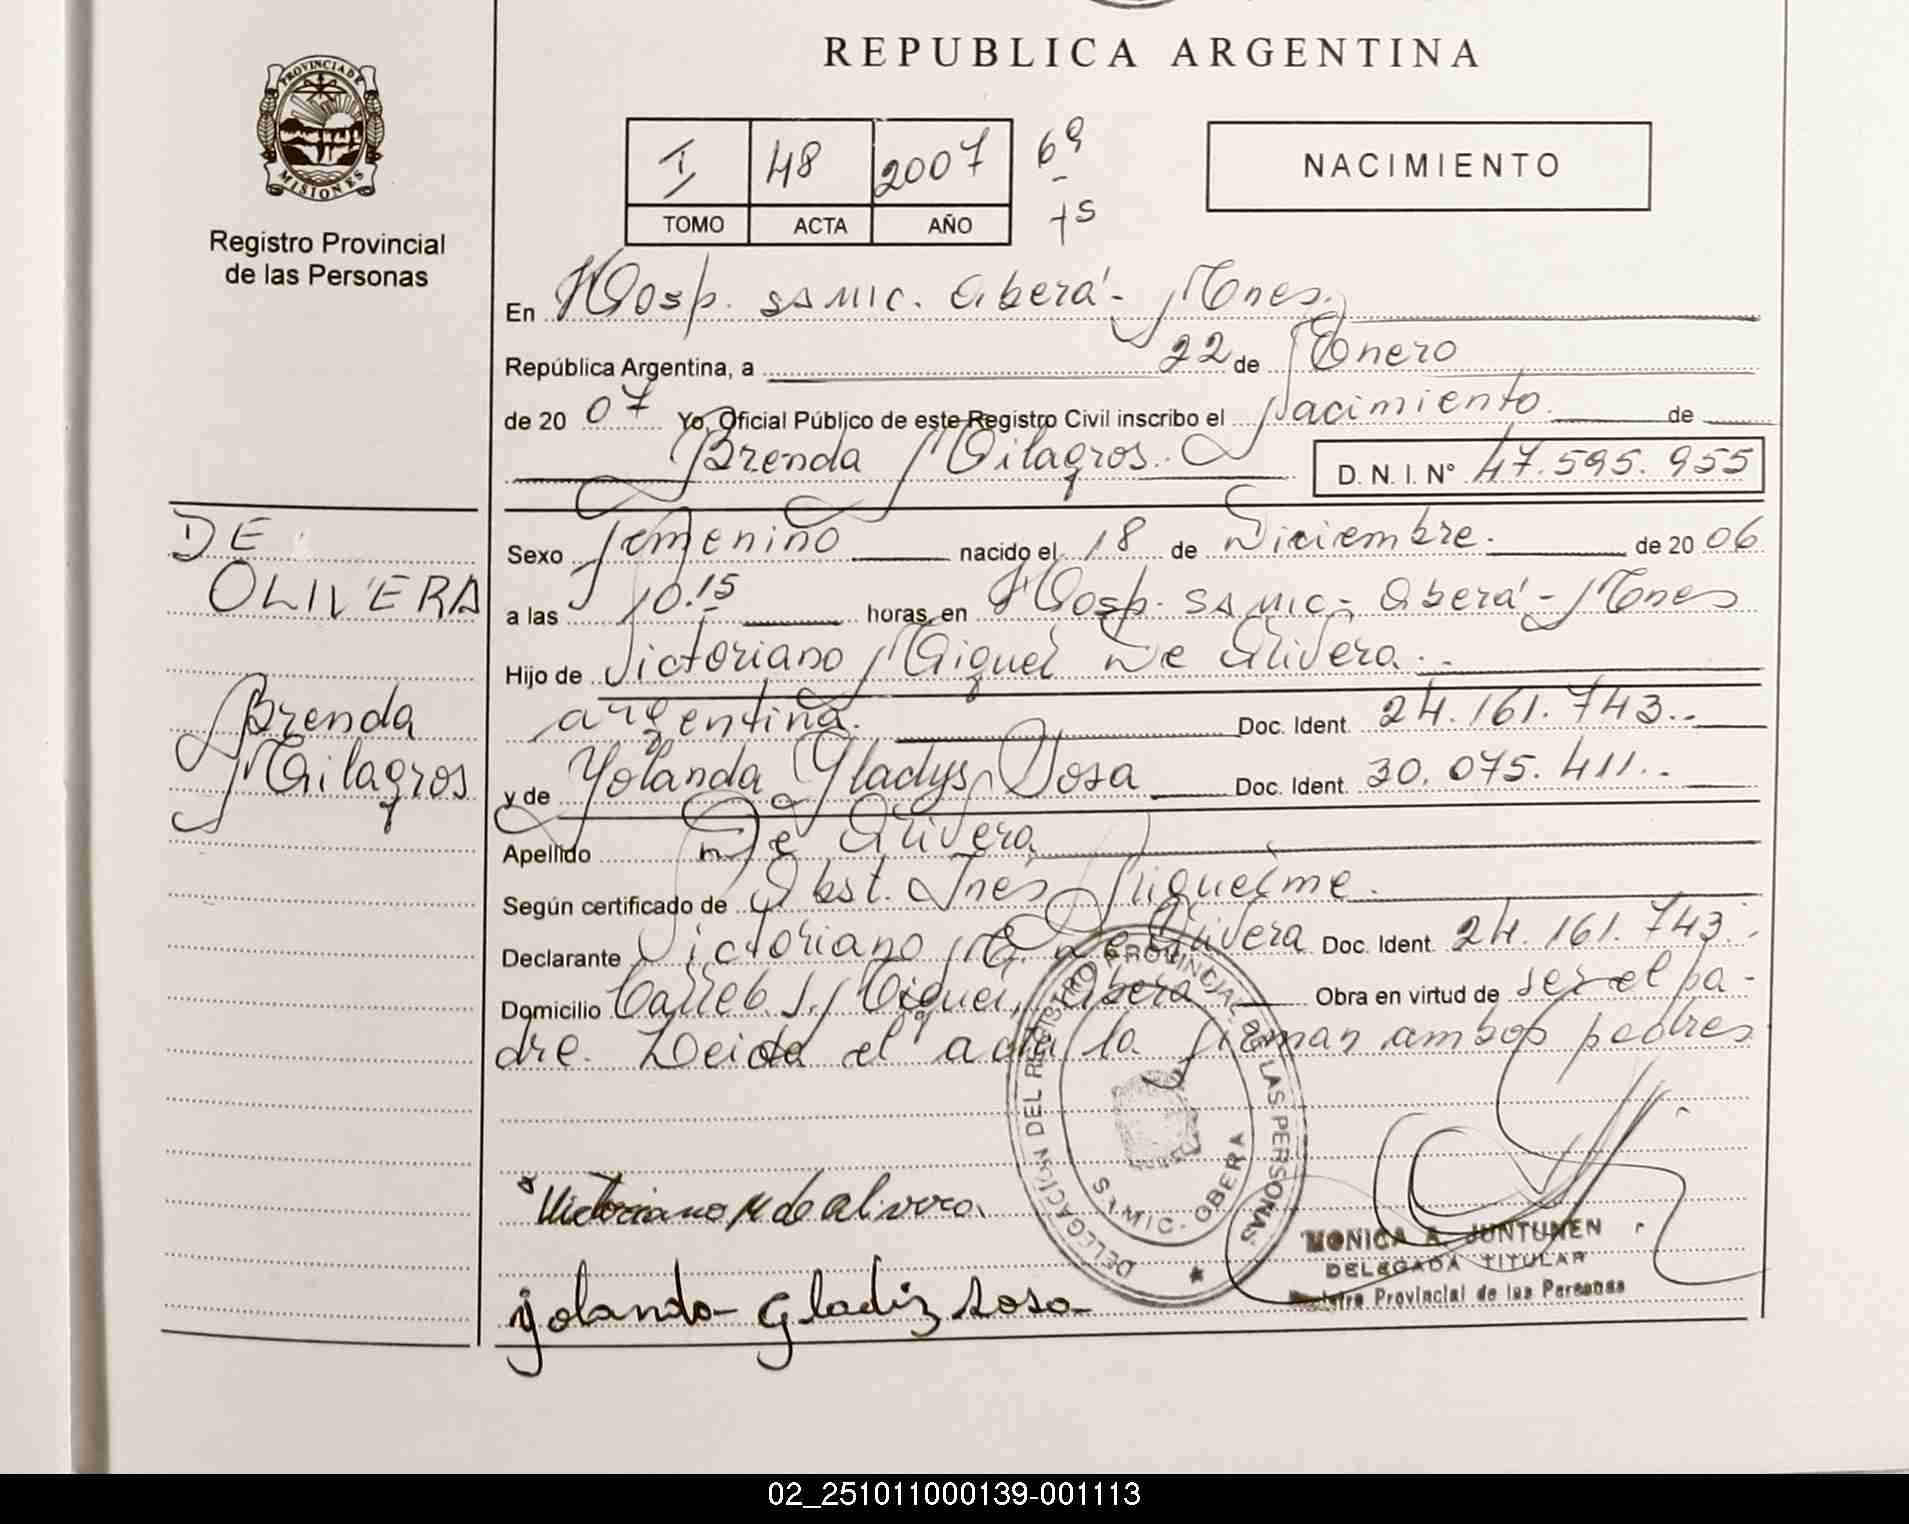 REPUBLICA ARGENTINA
PROVINCIA DE MISIONES
Registro Provincial
de las Personas
I 48 2007 6º
TOMO ACTA AÑO
NACIMIENTO
En Hosp. SAMIC. Oberá - Mnes.
República Argentina, a 22 de Enero
de 20 07 Yo, Oficial Público de este Registro Civil inscribo el Nacimiento de
Brenda Milagros. D. N. I. N° 47.595.955
DE
OLIVERA
Brenda
Milagros
Sexo Femenino nacido el 18 de Diciembre. de 20 06
a las 10.15 horas, en Hosp. SAMIC - Oberá - Mnes
Hijo de Victoriano Miguel De Olivera.
argentina. Doc. Ident. 24.161.743..
y de Yolanda Gladys Sosa Doc. Ident. 30.075.411..
Apellido De Olivera
Según certificado de Obst. Inés Riquelme.
Declarante Victoriano M. De Olivera Doc. Ident. 24.161.743.
Domicilio Calle 6. S. Miguel, Oberá Obra en virtud de ser el pa-
dre. Leida el acta la firman ambos padres
DELEGACIÓN DEL REGISTRO PROVINCIAL DE LAS PERSONAS
SAMIC - OBERA
Victoriano M de olivera.
yolanda gladiz sosa
MONICA A. JUNTUNEN
DELEGADA TITULAR
Registro Provincial de las Personas
02_251011000139-001113